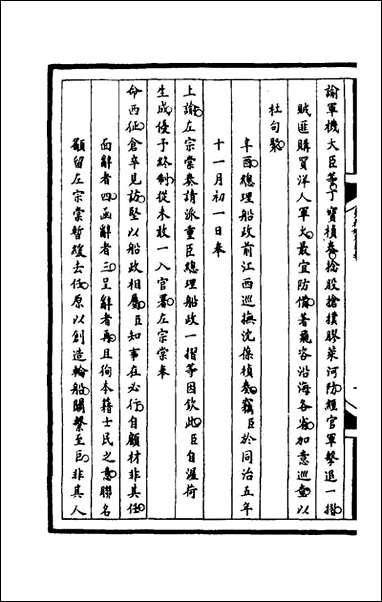 諭軍機大臣等丁寶楨奏捻股搶撲膠萊河防經官軍擊退一摺
賊匪購買洋人軍火最宜防備著飛咨沿海各省加意巡查以
杜句槃
辛酉總理船政前江西巡撫沈葆楨奏竊臣於同治五年
十一月初一日奉
上諭左宗棠奏請派重臣總理船政一摺等因欽此臣自渥荷
生成優予終制從未敢一入官署左宗棠奉
命西征倉卒見訪堅以船政相屬臣知事在必行自顧材非其任
面辭者四函辭者三呈辭者再且徇本籍士民之意聯名
籲留左宗棠暫緩去任原以創造輪船關繫至巨非其人